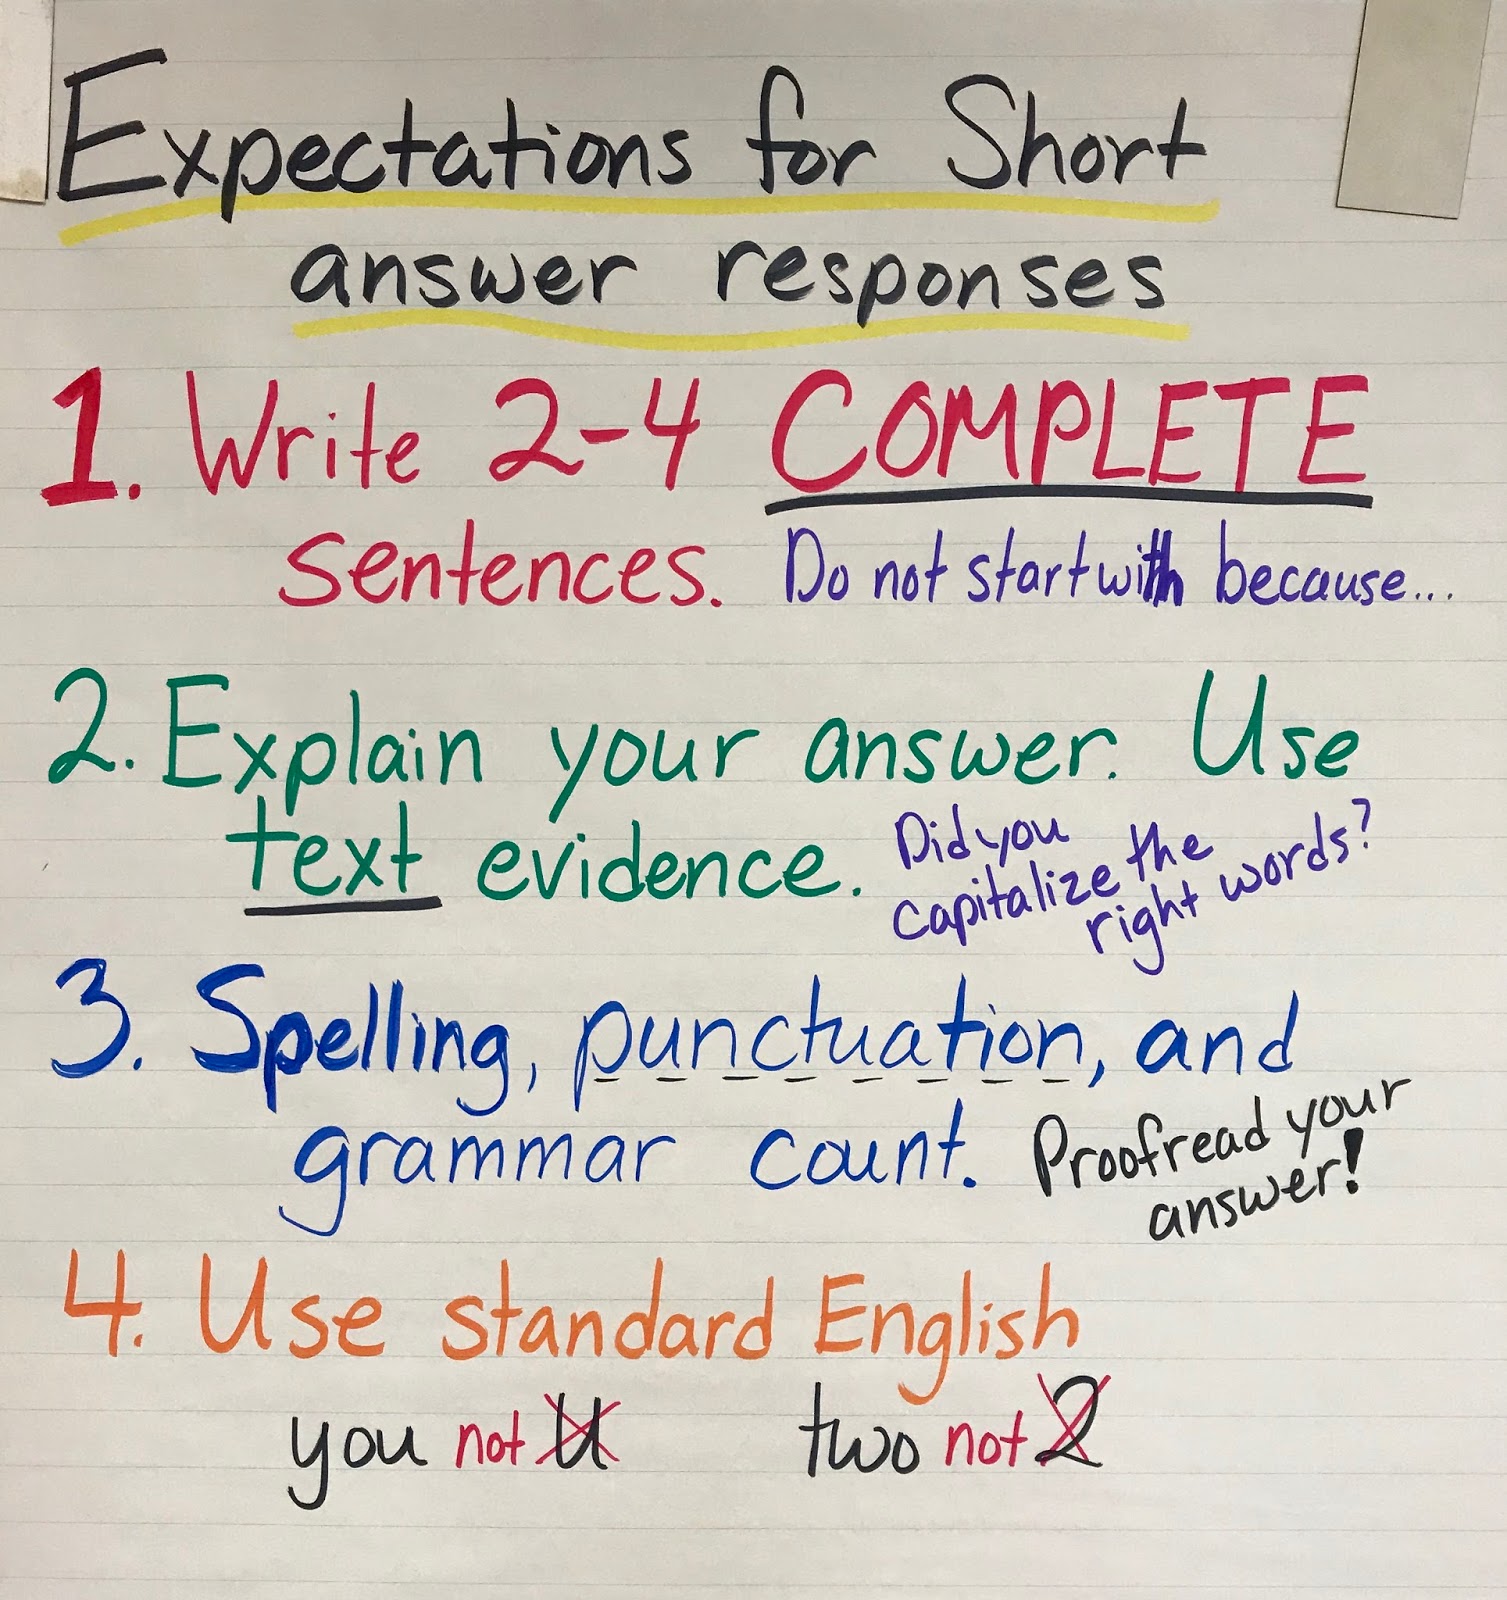 Expectations for Short
answer responses
1. Write 2-4 COMPLETE
sentences. Do not start with because...
2. Explain your answer. Use
text evidence.
Did you
capitalize the
right words?
3. Spelling, punctuation, and
grammar count.
Proofread your
answer!
4. Use standard English
you not u two not 2